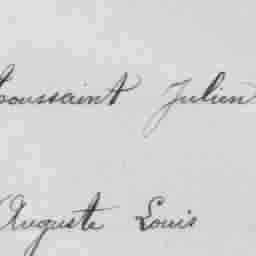 Toussaint Julien
Auguste Louis